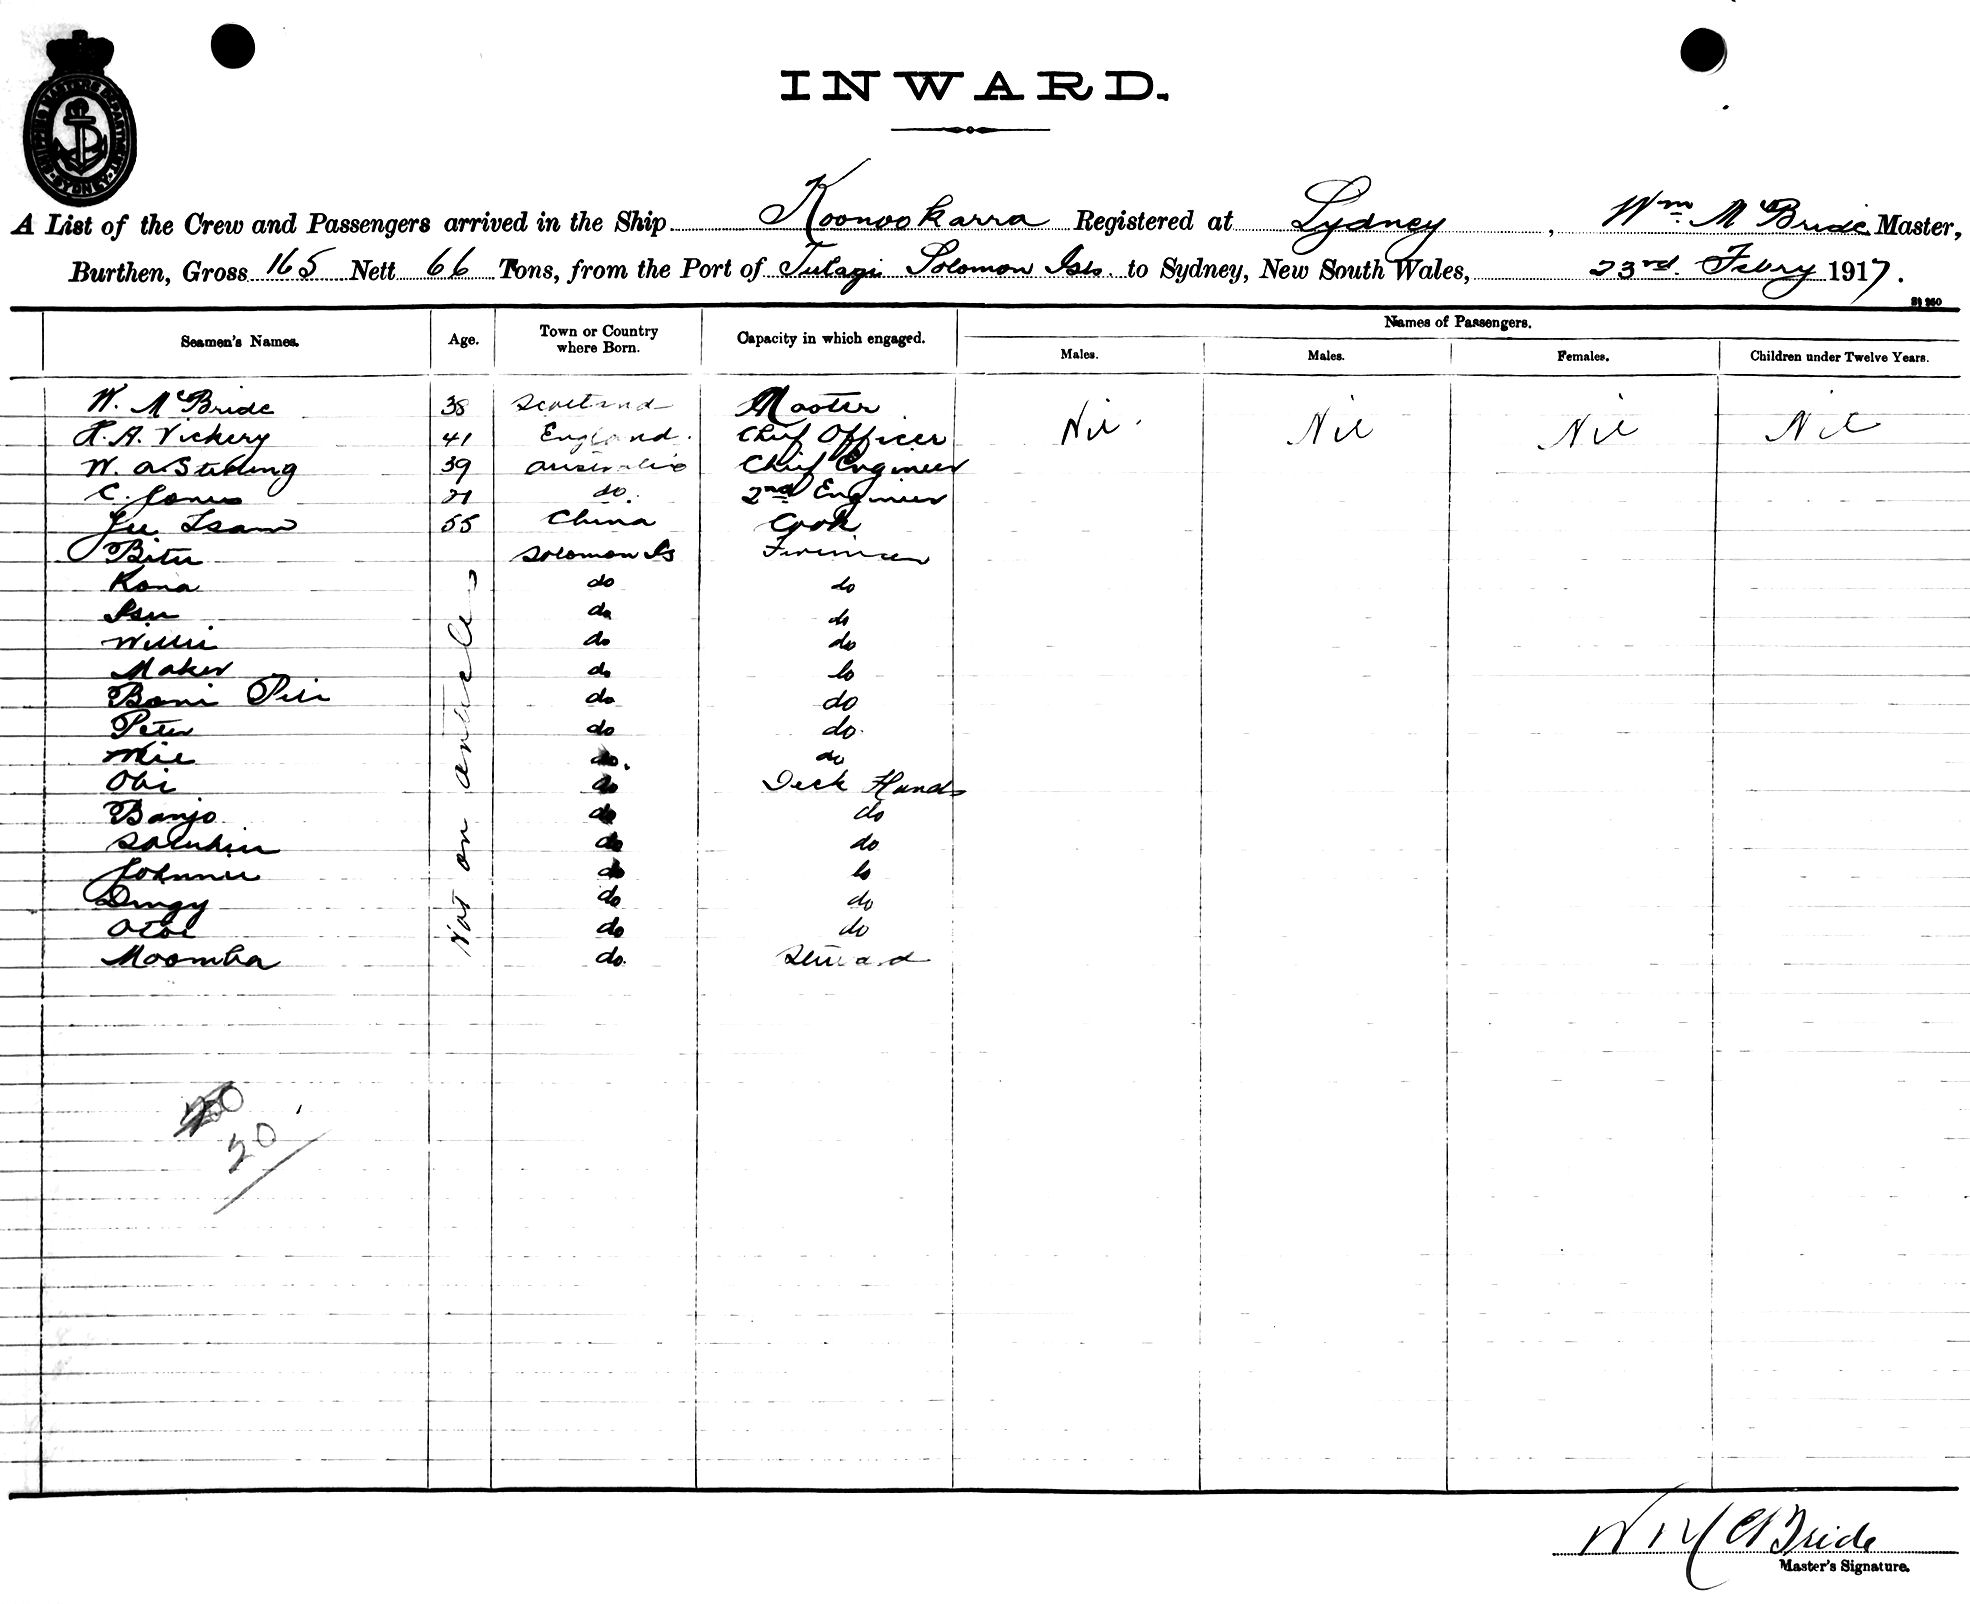 SHIPPING MASTERS DEPARTMENT SYDNEY
INWARD.
A List of the Crew and Passengers arrived in the Ship Koonookarra Registered at Sydney, Wm McBride Master,
Burthen, Gross 165 Nett 66 Tons, from the Port of Tulagi Solomon Isls to Sydney, New South Wales, 23rd Febry 1917.
Seamen's Names. Age. Town or Country where Born. Capacity in which engaged. Names of Passengers.
Males. Males. Females. Children under Twelve Years.
W. McBride 38 Scotland Master Nil Nil Nil Nil
A. Vickery 41 England Chief Officer
W. A Stirling 39 Australia Chief Engineer
C. Jones 21 do. 2nd Engineer
Tsam 55 China Cook
Solomon Is Firemen
Kona do do
do do
Willie do do
do do
Boni Pili do do
Peter do do
do. do
Obi do Deck Hands
Banjo do do
do do
Johnnie do do
Dingy do do
do do
Moomba do. Steward
Not on articles
20
W McBride
Master's Signature.